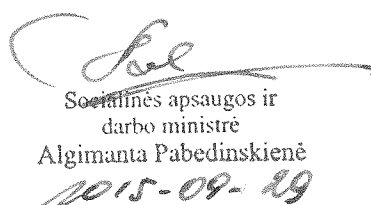 Socialinės apsaugos ir
darbo ministrė
Algimanta Pabedinskienė
2015-09-29